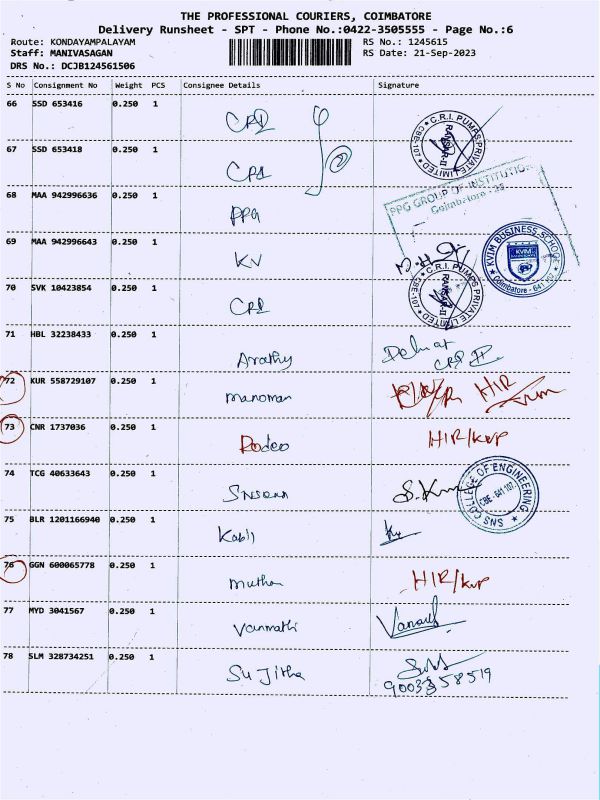 THE PROFESSIONAL COURIERS, COIMBATORE
Delivery Runsheet - SPT - Phone No.:0422-3505555 - Page No.:6
Route: KONDAYAMPALAYAM RS No.: 1245615
Staff: MANIVASAGAN RS Date: 21-Sep-2023
DRS No.: DCJB124561506
S No Consignment No Weight PCS Consignee Details Signature
66 SSD 653416 0.250 1 CRI
C.R.I. PUMPS PRIVATE LIMITED CBE-107 RANSAR-II
67 SSD 653418 0.250 1 CRI
68 MAA 942996636 0.250 1 PPG
PPG GROUP OF INSTITUTION
Coimbatore - 35
69 MAA 942996643 0.250 1 KV
KVIM BUSINESS SCHOOL KVIM Coimbatore - 641 107
70 SVK 10423854 0.250 1 CRI
C.R.I. PUMPS PRIVATE LIMITED CBE-107 RANSAR-II
71 HBL 32238433 0.250 1 Arathy
CRI II
72 KUR 558729107 0.250 1 manoman HIR
73 CNR 1737036 0.250 1 Rodeo HIR/kvp
74 TCG 40633643 0.250 1
SNS COLLEGE OF ENGINEERING CBE - 641 107
75 BLR 1201166940 0.250 1 Kabli
76 GGN 600065778 0.250 1 muthu HIR/kvp
77 MYD 3041567 0.250 1 Vanmathi
78 SLM 328734251 0.250 1 SuJitha